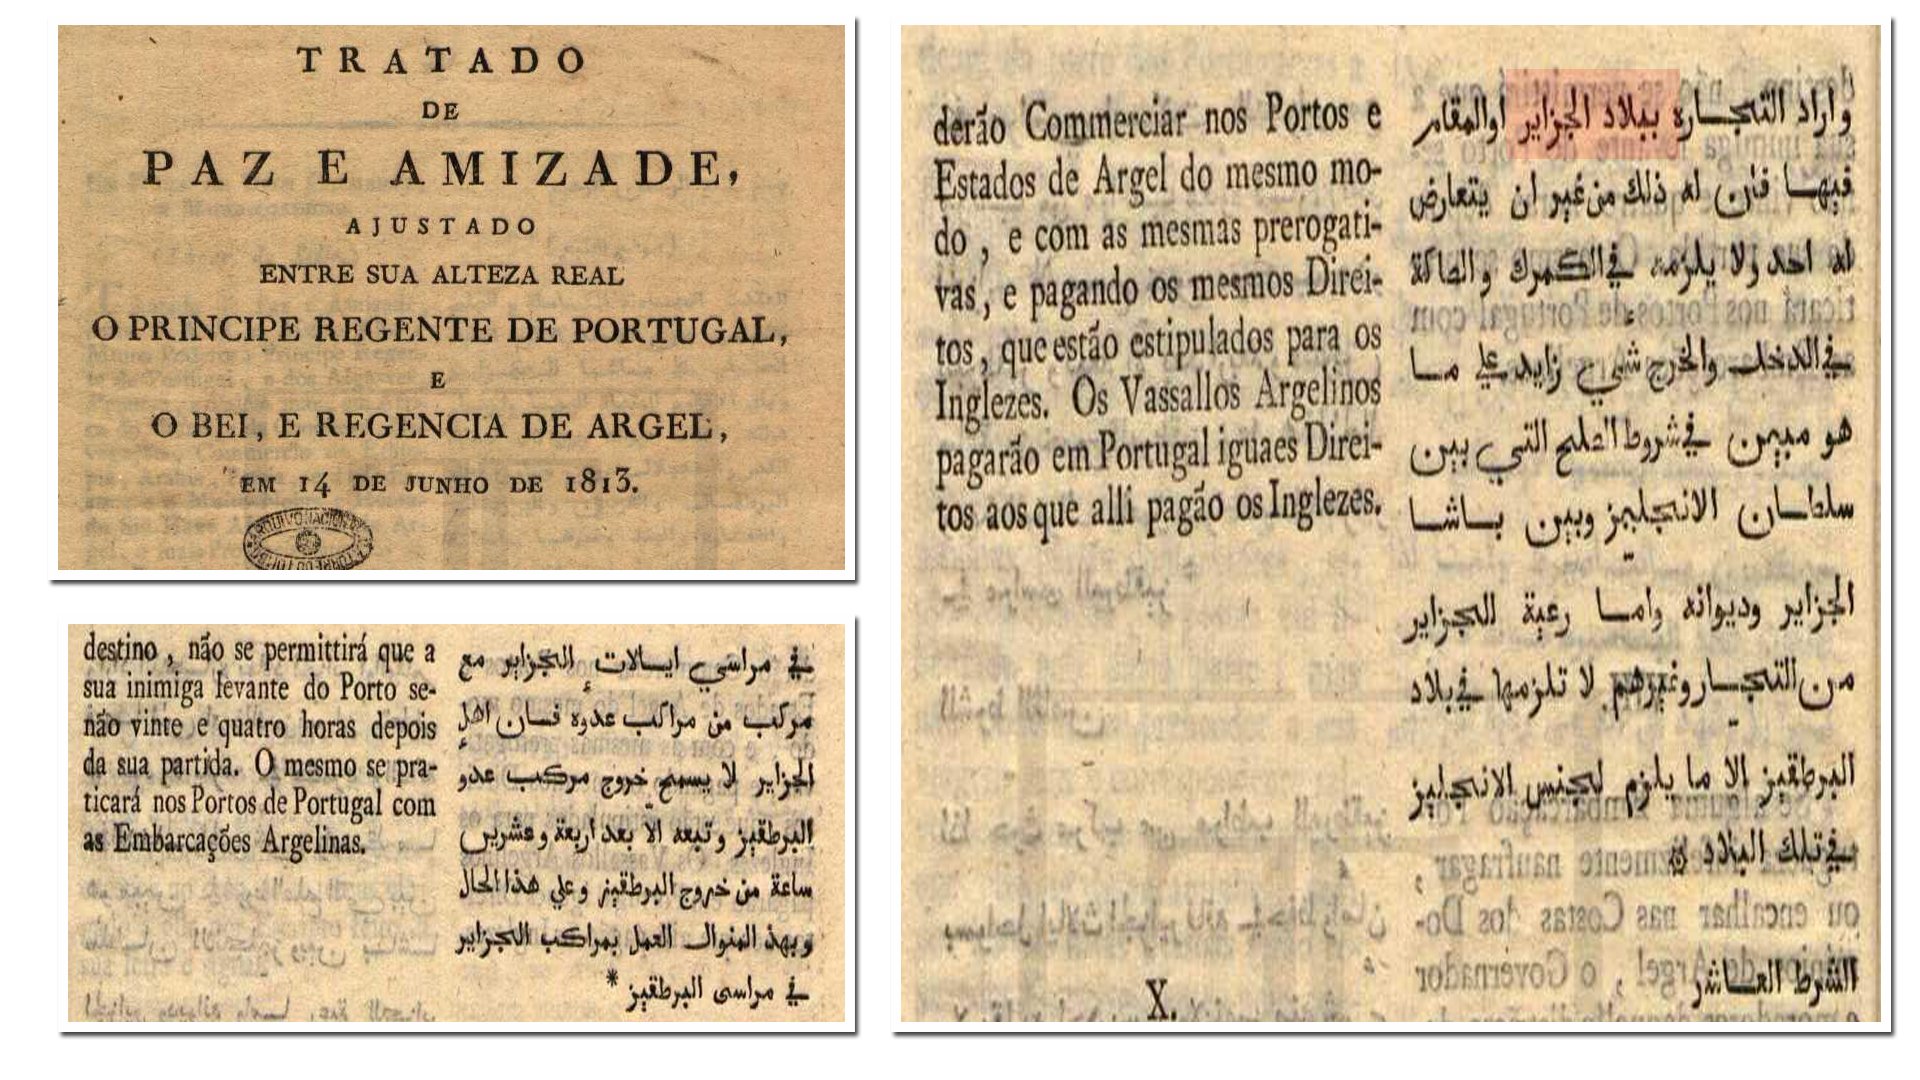 TRATADO
DE
PAZ E AMIZADE,
AJUSTADO
ENTRE SUA ALTEZA REAL
O PRINCIPE REGENTE DE PORTUGAL,
E
O BEI, E REGENCIA DE ARGEL,
EM 14 DE JUNHO DE 1813.
destino, não se permittirá que a
sua inimiga levante do Porto se-
não vinte e quatro horas depois
da sua partida. O mesmo se pra-
ticará nos Portos de Portugal com
as Embarcações Argelinas.
في مراسي ايالات الجزاير مع
مركب من مراكب عدوه فان اهل
الجزاير لا يسمح خروج مركب عدو
البرطقيز وتبعه الا بعد اربعة وعشرين
ساعة من خروج البرطقيز وعلي هذا الحال
وبهذ المنوال العمل بمراكب الجزاير
في مراسى البرطقيز *
derão Commerciar nos Portos e
Estados de Argel do mesmo mo-
do, e com as mesmas prerogati-
vas, e pagando os mesmos Direi-
tos, que estão estipulados para os
Inglezes. Os Vassallos Argelinos
pagarão em Portugal iguaes Direi-
tos aos que alli pagão os Inglezes.
واراد التجارة ببلاد الجزاير اوالمقام
فيها فان له ذلك من غير ان يتعارض
له احد ولا يلزمه في الكمرك
في الدخل والخرج شي زايد علي ما
هو مبين في شروط الصلح التي بين
سلطان الانجليز وبين باشا
الجزاير وديوانه واما رعية الجزاير
من التجار وغيرهم لا تلزمها في بلاد
البرطقيز الا ما يلزم لجنس الانجليز
في تلك البلاد
الشرط العاشر
X.